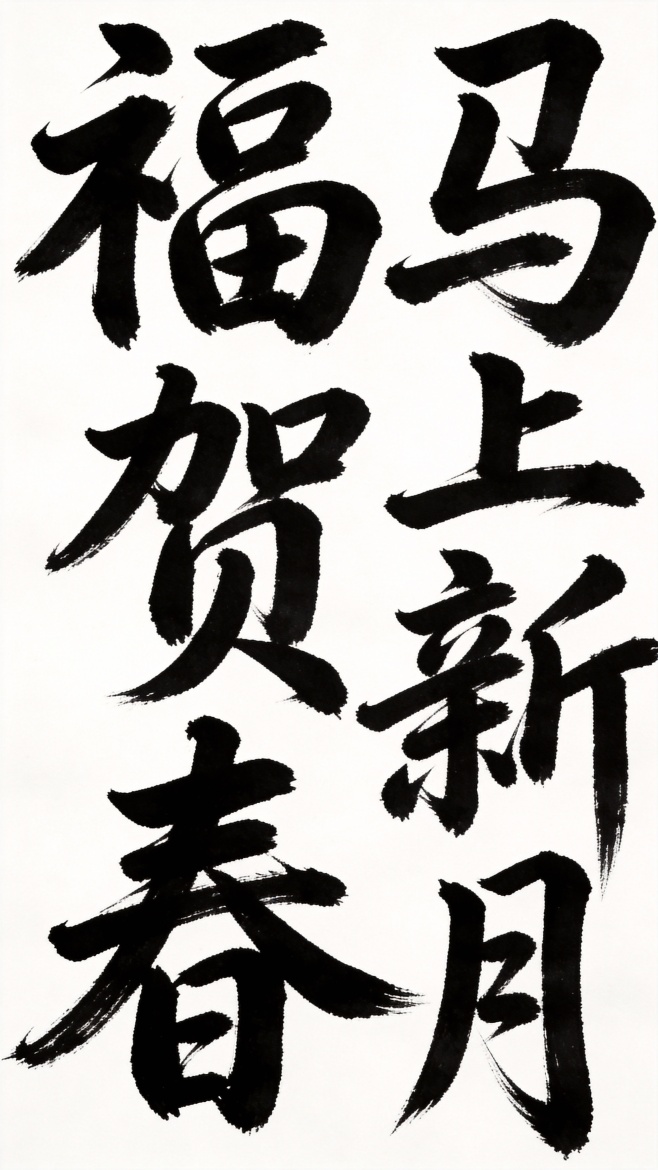 马上新月
福贺春